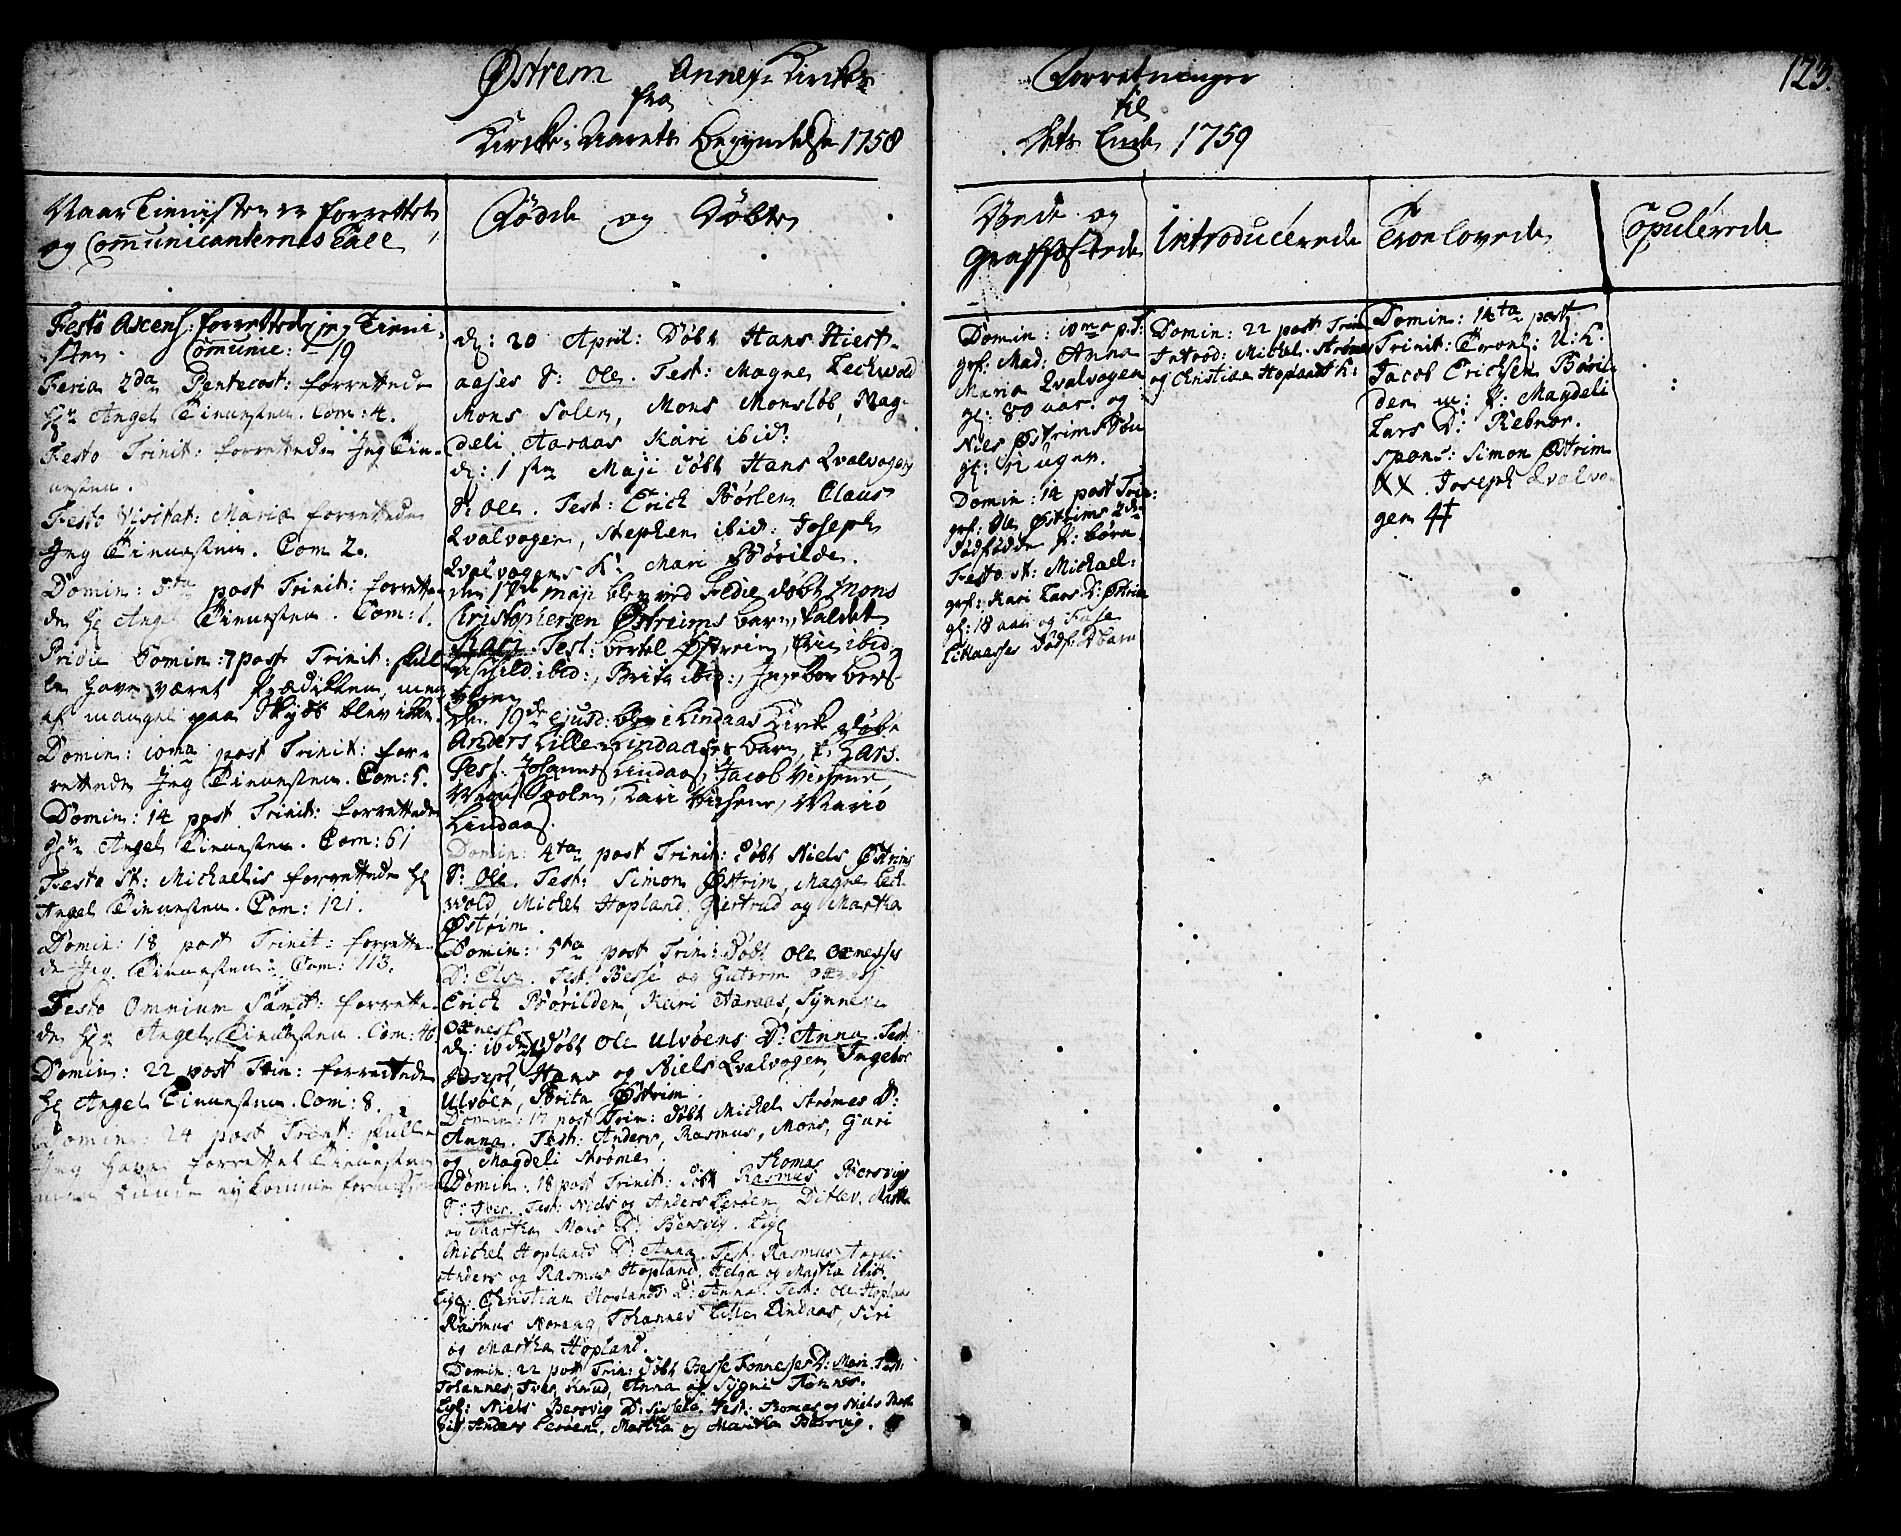 Østrem Annex-Kirkes
fra
Kirke-Aarets Begyndelse 1758
Forretninger
til
dets Ende 1759
123.
Naar Tienisten er forrettet
og Communicanternes Tall
Fødde og Døbte
Døde og
Graffæstede
Introducerede
Troelovede
Copulerede
Festo Ascens: forrettede jeg Tieni-
sten. Comunic: 19
Feria 2da Pentecost: forrettede
Hr Angel Tienesten. Com: 4.
Festo Trinit: forrettede Jeg Tien-
nesten.
Festo Visitat: Mariæ forrettede
Jeg Tienesten. Com 2.
Domin: 5ta post Trinit: forrette-
de Hr Angel Tienesten. Com: 1.
Pridie Domin: 7 post Trinit: skul-
le have været Prædikken, men
af mangel paa Skyds blev ikke.
Domin: 10ma post Trinit: for-
rettede Jeg Tienesten. Com: 5.
Domin: 14 post Trinit: forrettede
Hr Angel Tienesten. Com: 61
Festo St: Michaelis forrettede Hr
Angel Tienesten. Com: 121.
Domin: 18 post Trinit: forrette-
de Jeg Tienesten: Com: 113.
Festo Omnium Sanct: forrette-
de Hr Angel Tienesten. Com: 46
Domin: 22 post Trin: forrettede
Hr Angel Tienesten. Com: 8.
Domin: 24 post Trinit: skulle
Jeg have forrettet Tienesten
men kunde ey komme
d: 20 April: Døbt Hans Hiest-
aases S: Ole. Test: Magne Leckvold
Mons Solem, Mons Monsløb, Mag-
deli Aaraas Kari ibid:
d: 1 ste Maji døbt Hans Qvalvogens
S: Ole. Test: Erich Børlen Claus
Qvalvogen, Stephen ibid: Joseph
Qvalvogens K: Mari Børilde.
den 17de Maji blev ved Fedie døbt Mons
Christophersen Østreims barn, kaldet
Kari. Test: Bertel Østreim, ibid,
ibid:, Brita ibid:, Ingebor Bers-
den 19de ejusd: blev i Lindaas Kirke døbt
Anders Lille-Lindaases barn, k: Lars.
Test: Johannes Lindaas, Jacob Vichene
Kari Vichene, Mario
Lindaas.
Domin: 4ta post Trinit: Døbt Niels Østrims
S: Ole. Test: Simon Østrim, Magne Leck-
vold Michel Hopland, Giertrud og Martha
Østrim.
Domin: 5ta post Trin: Døbt Ole Oxnesses
D: Elsa. Test: Besse og Gutorm Oxnes
Erich Børilden, Kari Aaraas, Synneve
Oxness.
d: 10de døbt Ole Ulvøens D: Anna. Test:
Joseph, Hans og Niels Qvalvogen Ingebor
Ulvøen, Brita Østrim.
Domin: 17 post Trin: Døbt Michel Strømes D:
Anna. Test: Anders, Rasmus, Mons, Guri
og Magdeli Strøme.
Thomas
Domin: 18 post Trinit: Døbt Rasmus Bersvigs
S: Iver. Test: Niels og Anders Lerøen Ditlev, Martha
og Martha Mons D: Bersvig. Lige
Michel Hoplands D: Anna. Test: Rasmus
Anders og Rasmus Hopland, Helga og Martha ibid.
Lige: Christian Hoplands D: Anna. Test: Ole Hopland
Rasmus Norang, Johannes Lille Lindaas, Siri
og Martha Hopland.
Domin: 22 post Trin: Døbt Besse Fonnesses D: Mari. Test:
Johannes, Iver, Knud, Anna og Sygni Fonnes.
Lige: Niels Bersvig D: Sisela. Test: Thomas og Niels
Anders Lerøen, Martha og Maritha Bersvig.
Domin: 10ma p.T:
grf: Mad: Anna
Maria Qvalvogen
gl: 80 aar. og
Niels Østrims Søn
gl: 12 uger.
Domin: 14 post Trin:
grf: Ole Østrims 2de
Dødfødde P: børn.
Festo st: Michael:
grf: Kari Lars D: Østrim
gl: 18 aar og
Lihaases Dødf: D barn
Domin: 22 post Trin
Introd: Michel Strømes
og Christian Hoplands K:
Domin: 14ta post
Trinit: Troel: U: K.
Jacob Erichsen Børil-
den m: P: Magdeli
Lars D: Rebnor.
spons: Simon Østrim
XX. Joseph Qvalvo-
gen